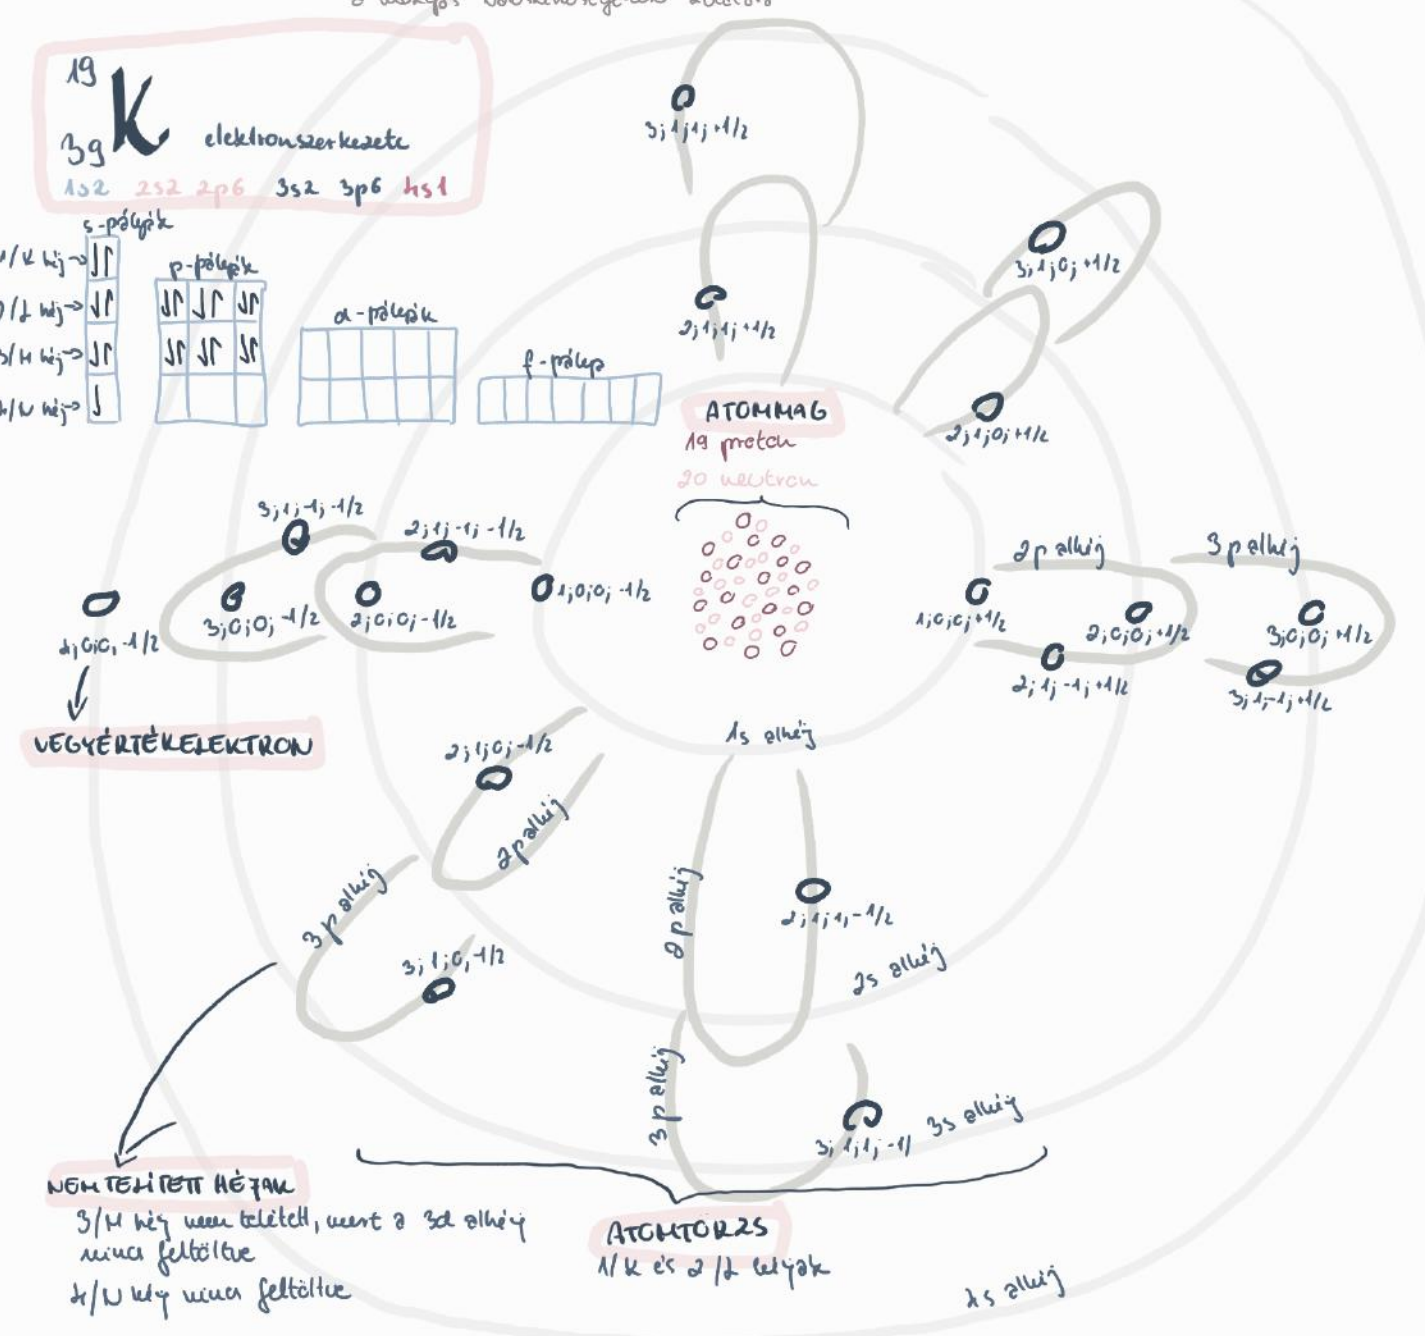 19
K
39
elektronszerkezete
1s2 2s2 2p6 3s2 3p6 4s1
s-pályák
/K héj→
/L héj→
3/M héj→
4/N héj→
p-pályák
d-pályák
f-pálya
3;1;1;+1/2
2;1;1;+1/2
3;1;0;+1/2
2;1;0;+1/2
ATOMMAG
19 proton
20 neutron
3;1;-1;-1/2
2;1;-1;-1/2
4;0;0,-1/2
3;0;0;-1/2
2;0;0;-1/2
1;0;0;-1/2
VEGYÉRTÉKELEKTRON
2p alhéj
3p alhéj
1;0;0;+1/2
2;0;0;+1/2
3;0;0;+1/2
2;1;-1;+1/2
3;1;-1;+1/2
1s alhéj
2;1;0;-1/2
2p alhéj
3p alhéj
3;1;0,-1/2
2p alhéj
2;1;1,-1/2
2s alhéj
3p alhéj
3;1;1;-1/
3s alhéj
NEM TELÍTETT HÉJAK
3/M héj nem telített, mert a 3d alhéj
nincs feltöltve
4/N héj nincs feltöltve
ATOMTÖRZS
1/K és 2/L héjak
4s alhéj